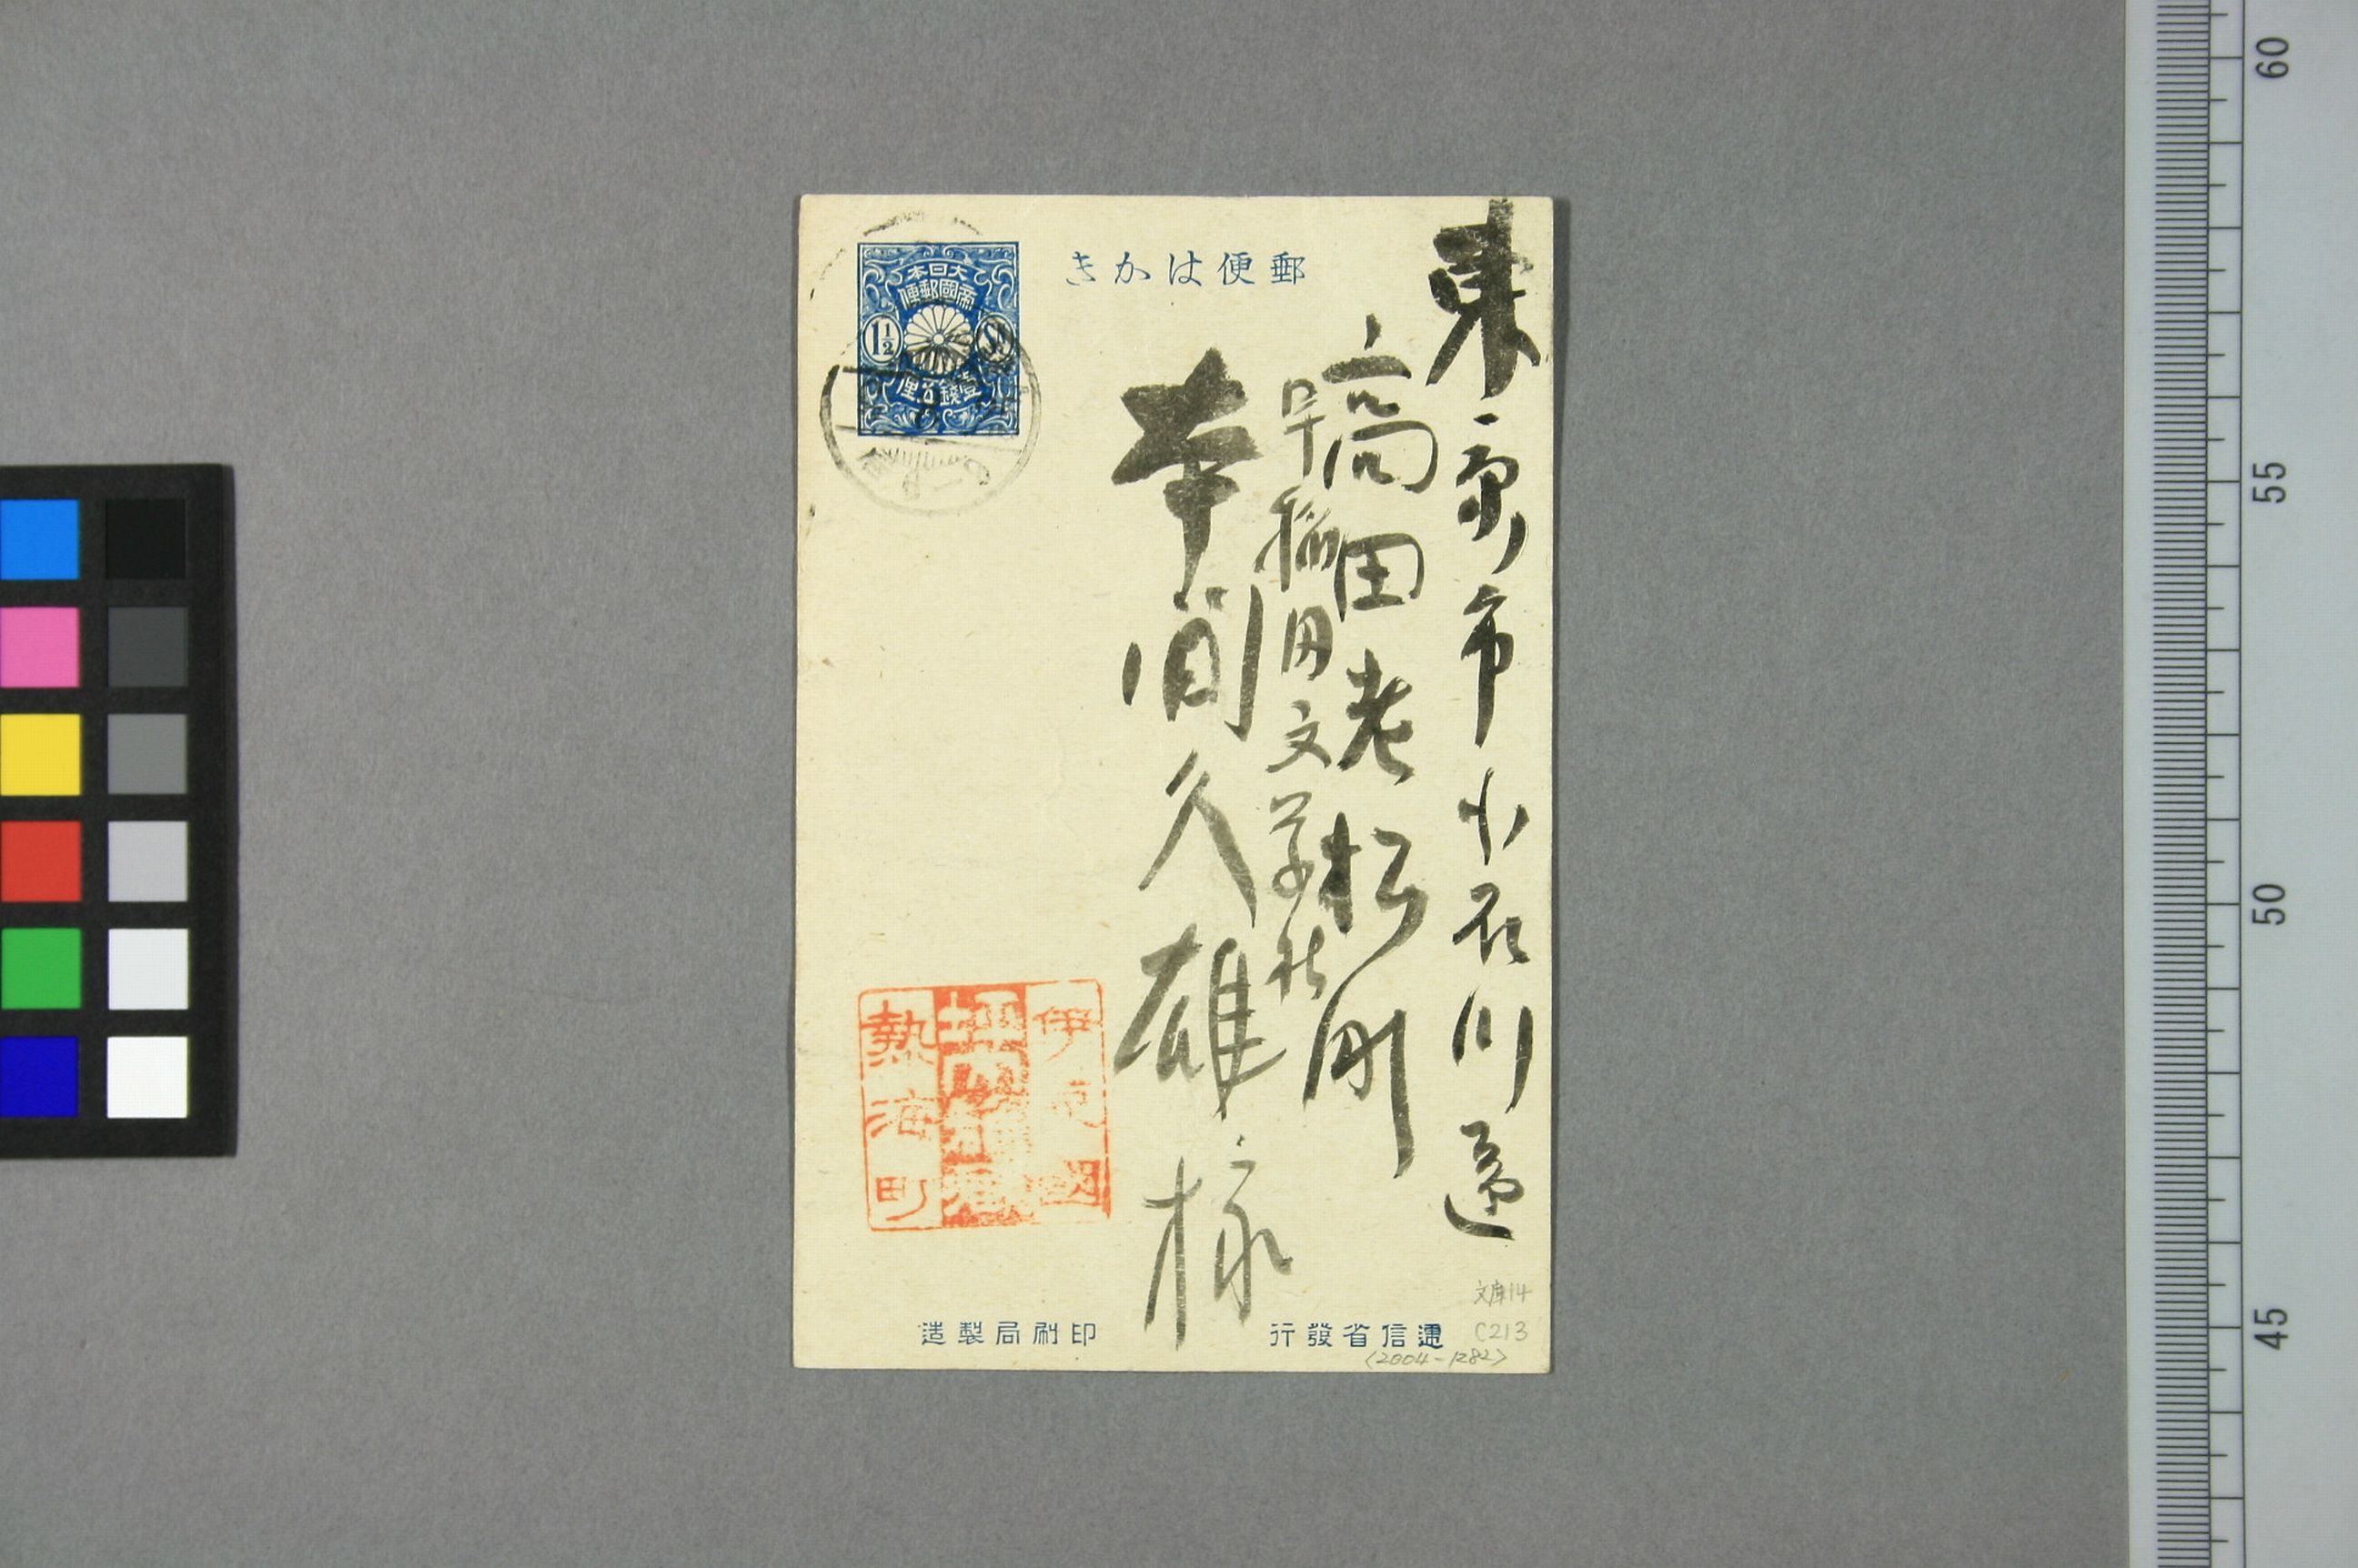 郵便はかき
大日本
帝國郵便
1½ Sn
壹錢五厘
東京市小石川區
高田老松町
早稲田文学社
本間久雄様
伊豆國
坪内
熱海町
逓信省發行
印刷局製造
文庫14
C213
(2004-1282)
60
55
50
45